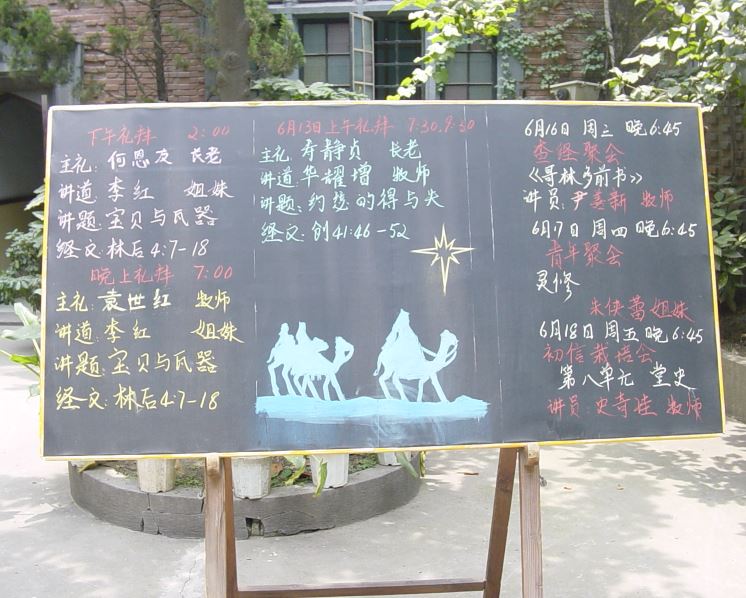 下午礼拜 2:00
主礼:何恩友 长老
讲道:李红 姐妹
讲题:宝贝与瓦器
经文:林后4:7-18
晚上礼拜 7:00
主礼:袁世红 牧师
讲道:李红 姐妹
讲题:宝贝与瓦器
经文:林后4:7-18
6月13日上午礼拜 7:30.9:30
主礼:寿静贞 长老
讲道:华耀增 牧师
讲题:约瑟的得与失
经文:创41:46-52
6月16日 周三 晚6:45
查经聚会
《哥林多前书》
讲员:尹善新 牧师
6月17日 周四 晚6:45
青年聚会
灵修
朱侠蕾姐妹
6月18日 周五晚6:45
初信栽培会
第八单元 堂史
讲员:史奇珪 牧师